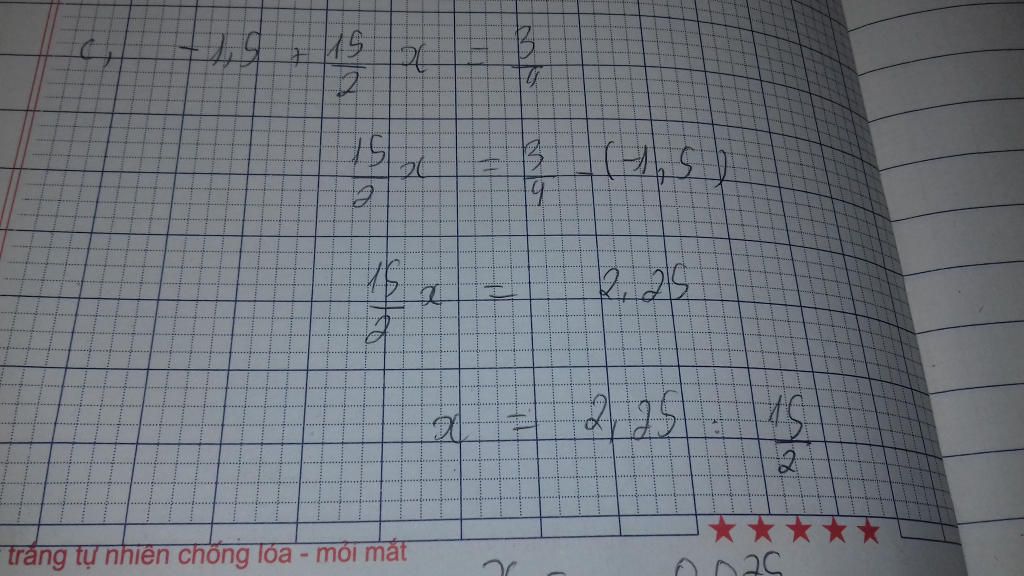 c, -1,5 + 15/2 x = 3/4
15/2 x = 3/4 - (-1,5)
15/2 x = 2,25
x = 2,25 : 15/2
trắng tự nhiên chống lóa - mỏi mắt
x =